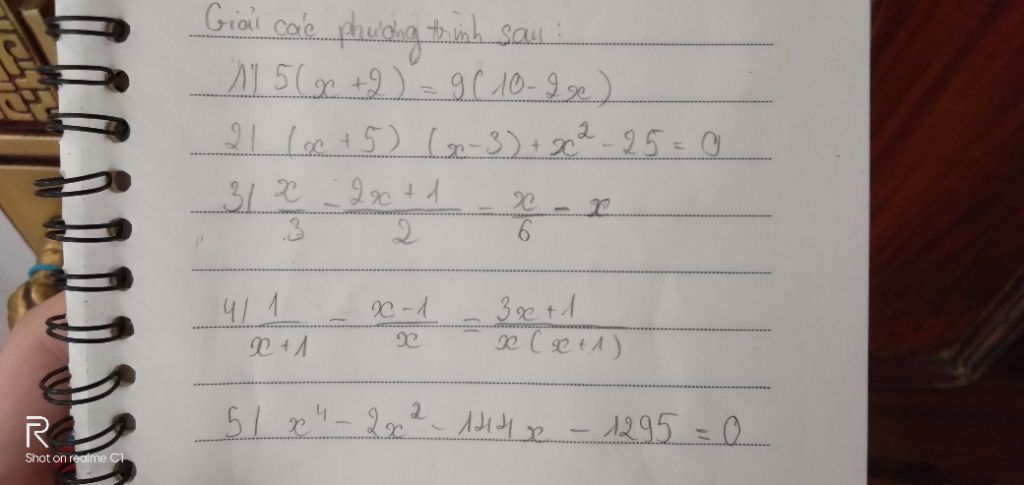 Giải các phương trình sau:
1) 5(x+2) = 9(10-2x)
2) (x+5) (x-3) + x² - 25 = 0
3) x/3 - (2x+1)/2 - x/6 - x
4) 1/(x+1) - (x-1)/x = (3x+1)/(x(x+1))
5) x⁴ - 2x² - 144x - 1295 = 0
R
Shot on realme C1